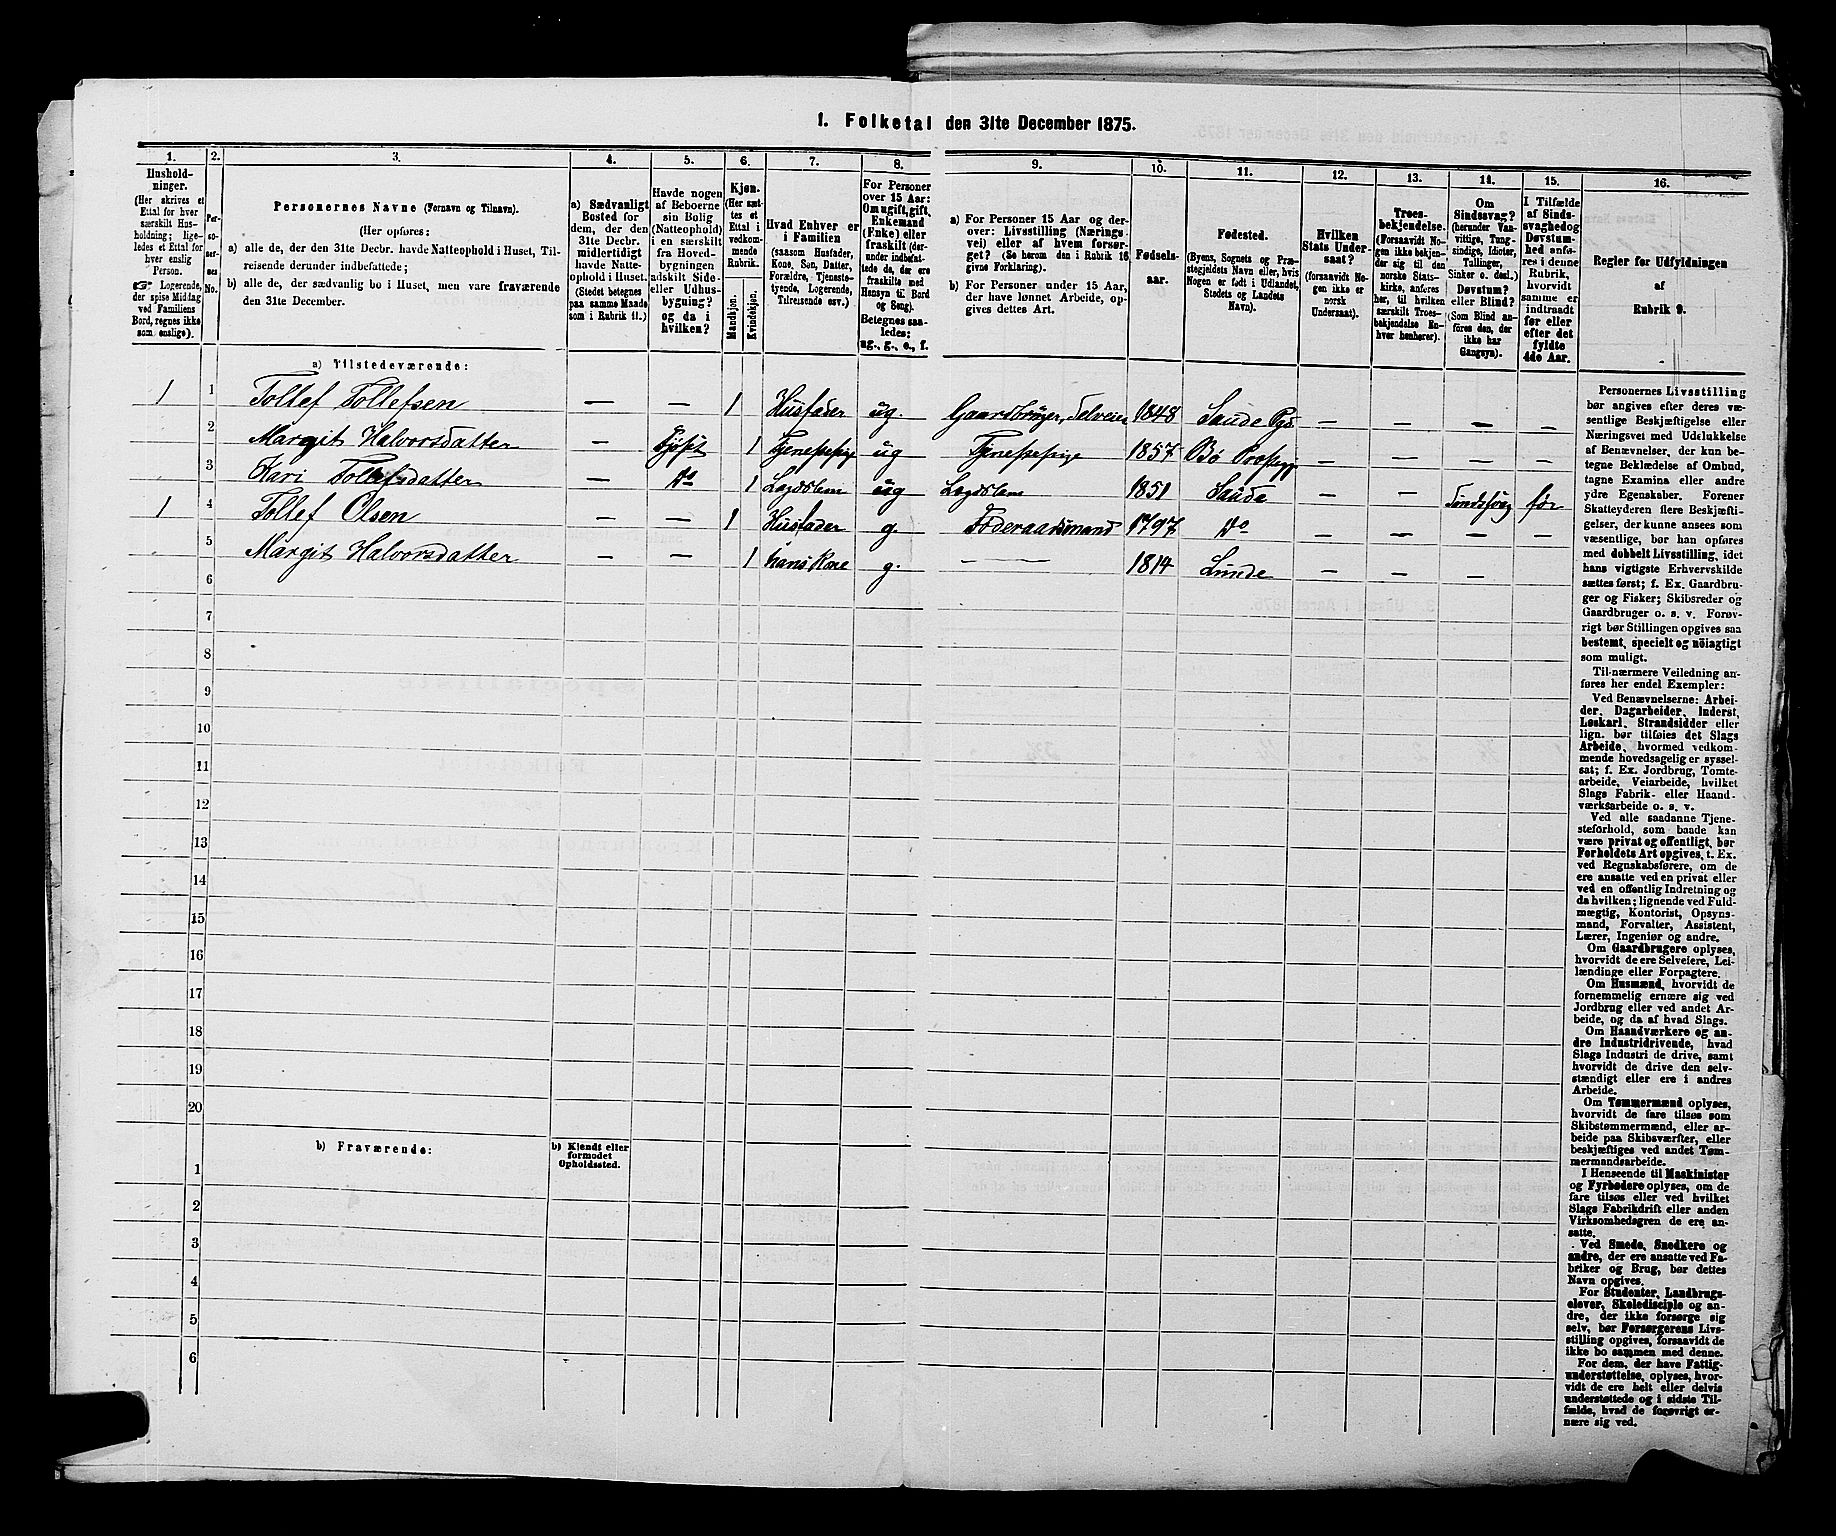 1. Folketal den 31te December 1875.
1. 2. 3. 4. 5. 6. 7. 8. 9. 10. 11. 12. 13. 14. 15. 16.
Hushold-
ninger.
(Her skrives et
Ettal for hver
særskilt Hus-
holdning; lige-
ledes et Ettal for
hver enslig
Person.
Logerende,
der spise Middag
ved Familiens
Bord, regnes ikke
som enslige).
Per-
so-
ner-
nes
No.
Personernes Navne (Fornavn og Tilnavn).
(Her opføres:
a) alle de, der den 31te Decbr. havde Natteophold i Huset, Til-
reisende derunder indbefattede;
b) alle de, der sædvanlig bo i Huset, men vare fraværende
den 31te December.
a) Sædvanligt
Bosted for
dem, der den
31te Decbr.
midlertidigt
havde Natte-
ophold i Huset.
(Stedet betegnes
paa samme Maade
som i Rubrik 11.)
Havde nogen
af Beboerne
sin Bolig
(Natteophold)
i en særskilt
fra Hoved-
bygningen
adskilt Side-
eller Udhus-
bygning?
og da i
hvilken?
Kjøn.
(Her sæt-
tes et
Ettal i
vedkom-
mende
Rubrik.
Mandkjøn.
Kvindekjøn.
Hvad Enhver er
i Familien
(saasom Husfader,
Kone, Søn, Datter,
Forældre, Tjeneste-
tyende, Logerende,
Tilreisende osv.)
For Personer
over 15 Aar:
Om ugift, gift,
Enkemand
(Enke) eller
fraskilt (der-
under indbefat-
tede de, der ere
fraskilte med
Hensyn til Bord
og Seng).
Betegnes saa-
ledes:
ug., g., e., f.
a) For Personer 15 Aar og der-
over: Livsstilling (Nærings-
vei) eller af hvem forsør-
get? (Se herom den i Rubrik 16
givne Forklaring).
b) For Personer under 15 Aar,
der have lønnet Arbeide, op-
gives dettes Art.
Fødsels-
aar.
Fødested.
(Byens, Sognets og Præ-
stegjeldets Navn eller, hvis
Nogen er født i Udlandet,
Stedets og Landets
Navn).
Hvilken
Stats Under-
saat?
(forsaavidt No-
gen ikke er
norsk
Undersaat).
Troes-
bekjendelse.
(Forsaavidt No-
gen ikke bekjen-
der sig til den
norske Stats-
kirke, anføres
her, til hvilken
særskilt Troes-
bekjendelse En-
hver henhører).
Om
Sindssvag?
(herunder Van-
vittige, Tung-
sindige, Idioter,
Tullinger,
Sinker o. desl.)
Døvstum?
eller Blind?
(Som Blind an-
føres den, der
ikke har
Gangsyn).
I Tilfælde
af Sinds-
svaghed og
Døvstum-
hed anfø-
res i denne
Rubrik,
hvorvidt
samme er
indtraadt
før eller
efter det
fyldte
4de Aar.
Regler for Udfyldningen
af
Rubrik 9.
a) Tilstedeværende:
1 1 Tollef Tollefsen — — 1 Husfader ug. Gaardbruger, Selveier 1848 Saude Pgd. — — — —
2 Margit Halvorsdatter — 1 Tjenestepige ug Tjenestepige 1857 Bø — — — —
3 Kari Tollefsdatter — Do 1 Lægdslem ug Lægdslem 1851 Saude — — Sindssvag før
1 4 Tollef Olsen — — 1 Husfader g Føderaadsmand 1797 Do — — — —
5 Margit Halvorsdatter — — 1 hans Kone g. — 1814 Lunde — — —
6
7
8
9
10
11
12
13
14
15
16
17
18
19
20
b) Fraværende:
b) Kjendt eller
formodet
Opholdssted.
1
2
3
4
5
6
Personernes Livsstilling
bør angives efter deres væ-
sentlige Beskjæftigelse eller
Næringsvei med Udelukkelse
af Benævnelser, der kun be-
tegne Beklædelse af Ombud,
tagne Examina eller andre
ydre Egenskaber. Forener
Skatteyderen flere Beskjæfti-
gelser, der kunne ansees som
væsentlige, bør han opføres
med dobbelt Livsstilling, idet
hans vigtigste Erhvervskilde
sættes først; f. Ex. Gaardbru-
ger og Fisker; Skibsreder og
Gaardbruger o. s. v. Forøv-
rigt bør Stillingen opgives saa
bestemt, specielt og nöiagtigt
som muligt.
Til nærmere Veiledning an-
føres her endel Exempler:
Ved Benævnelserne: Arbei-
der, Dagarbeider, Inderst,
Løskarl, Strandsidder eller
lign. bør tilføies det Slags
Arbeide, hvormed vedkom-
mende hovedsagelig er syssel-
sat; f. Ex. Jordbrug, Tomte-
arbeide, Veiarbeide, hvilket
Slags Fabrik- eller Haand-
værksarbeide o. s. v.
Ved alle saadanne Tjene-
steforhold, som baade kan
være privat og offentligt, bør
Forholdets Art opgives, t. Ex.
ved Regnskabsførere, om de
ere ansatte ved en privat eller
ved en offentlig Indretning og
da hvilken; lignende ved Fuld-
mægtig, Kontorist, Opsyns-
mand, Forvalter, Assistent,
Lærer, Ingeniør og andre.
Om Gaardbrugere oplyses,
hvorvidt de ere Selveiere, Lei-
lændinge eller Forpagtere.
Om Husmænd, hvorvidt de
fornemmelig ernære sig ved
Jordbrug eller ved andet Ar-
beide, og da af hvad Slags.
Om Haandværkere og an-
dre Industridrivende, hvad
Slags Industri de drive, samt
hvorvidt de drive den selv-
stændigt eller ere i andres
Arbeide.
Om Tømmermænd oplyses,
hvorvidt de fare tilsøs som
Skibstømmermænd, eller ar-
beide paa Skibsværfter, eller
beskjæftiges ved andet Tøm-
mermandsarbeide.
I Henseende til Maskinister
og Fyrbødere oplyses, om de
fare tilsøs eller ved hvilket
Slags Fabrikdrift eller anden
Virksomhedsgren de ere an-
satte.
Ved Smede, Snedkere og
andre, der ere ansatte ved Fa-
briker og Brug, bør dettes
Navn opgives.
For Studenter, Landbrugs-
elever, Skoledisciple og an-
dre, der ikke forsørge sig
selv, bør Forsørgerens Livs-
stilling opgives, forsaavidt de
ikke bo sammen med denne.
For dem, der have Fattig-
understøttelse, oplyses, hvor-
vidt de ere helt eller delvis
understøttede og i sidste Til-
fælde, hvad de forøvrigt er-
nære sig ved.